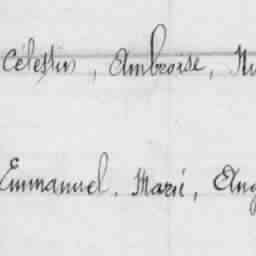 Célestin, Ambroise,
Emmanuel. Marie,